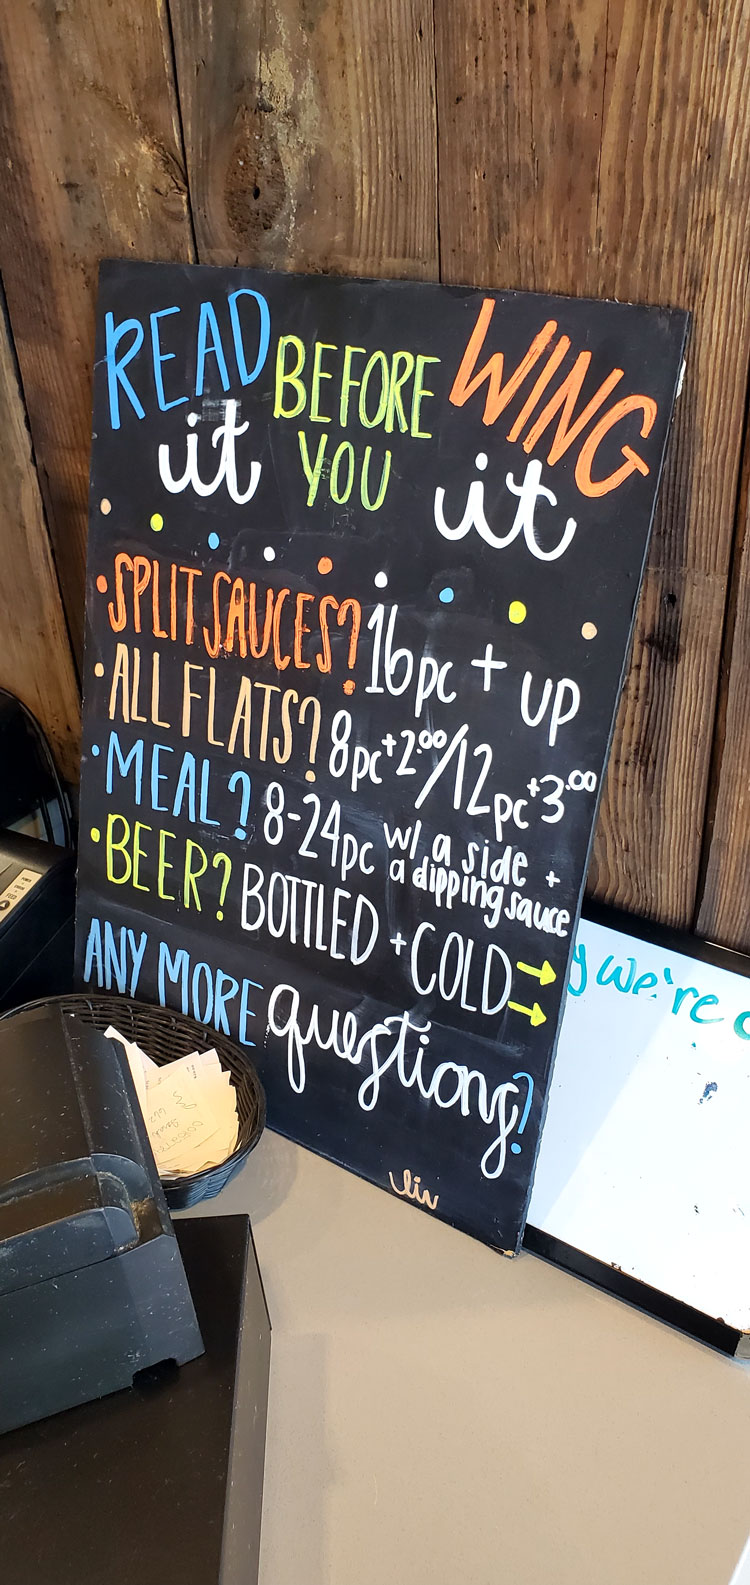 READ BEFORE WING
it YOU it
•SPLIT SAUCES? 16pc + UP
•ALL FLATS? 8pc+2.00/12pc+3.00
•MEAL? 8-24pc w/ a side +
a dipping sauce
•BEER? BOTTLED + COLD →
→
ANY MORE questions?
liv
y we're